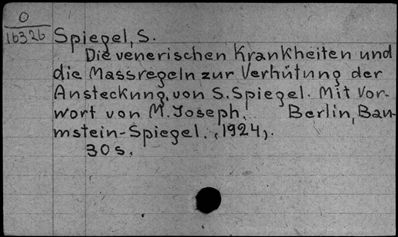 O
16326
Spiegel, S.
Die venerischen Krankheiten und
die Massregeln zur Verhütung der
Ansteckung, von S. Spiegel. Mit Vor-
wort von M. Joseph. Berlin, Bau-
mstein-Spiegel. (1924).
30 s.